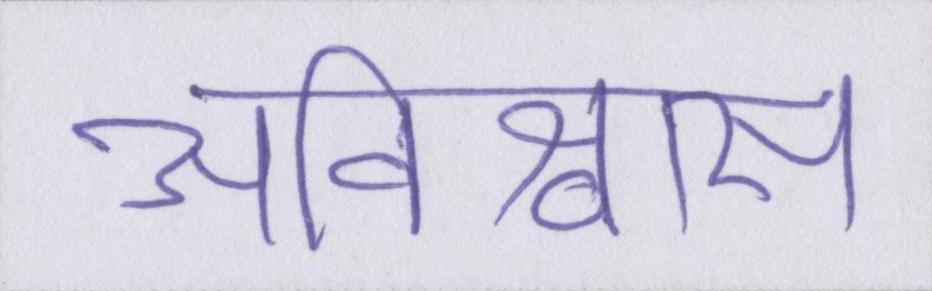 अविश्वास